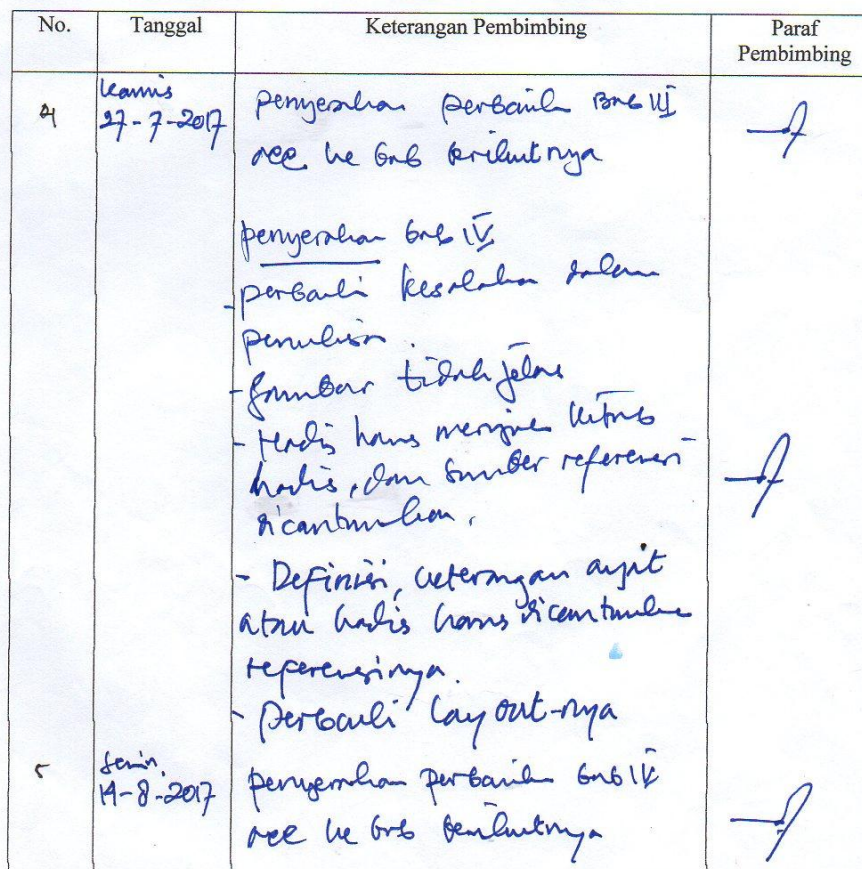 No.
Tanggal
Keterangan Pembimbing
Paraf
Pembimbing
4
Kamis
27-7-2017
penyerahan perbaikan Bab III
acc ke bab berikutnya
penyerahan bab IV
- perbaiki kesalahan dalam
penulisan.
- gambar tidak jelas
- Hadis harus merujuk kitab
hadis, dan sumber referensi
dicantumkan.
- Definisi, keterangan ayat
atau hadis harus dicantumkan
referensinya.
- perbaiki lay out-nya
5
Senin,
14-8-2017
penyerahan perbaikan bab IV
acc ke bab berikutnya